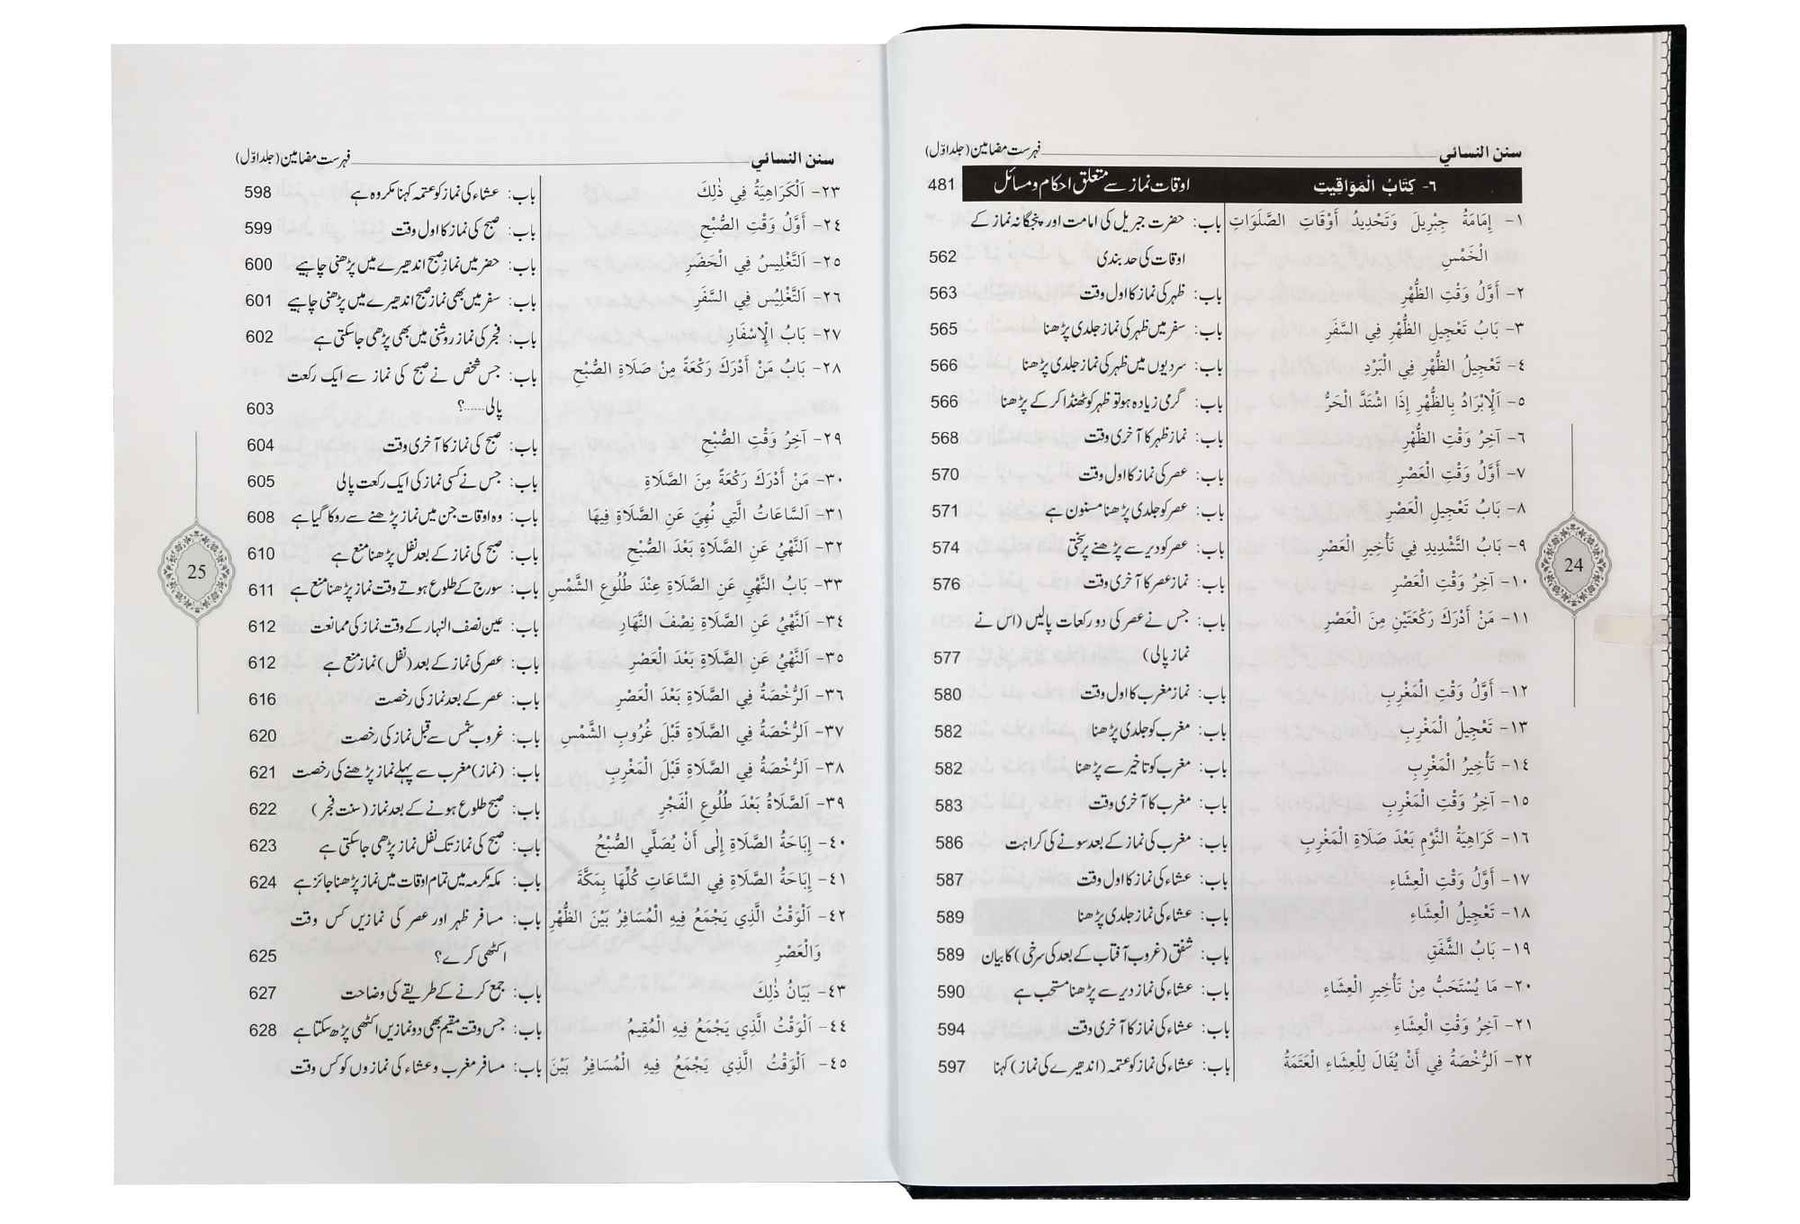 سنن النسائي فہرست مضامین (جلد اوّل)
٦- كِتَابُ الْمَوَاقِيتِ اوقات نماز سے متعلق احکام و مسائل 481
١- إِمَامَةُ جِبْرِيلَ وَتَحْدِيدُ أَوْقَاتِ الصَّلَوَاتِ باب: حضرت جبریل کی امامت اور پنجگانہ نماز کے
الْخَمْسِ اوقات کی حد بندی 562
٢- أَوَّلُ وَقْتِ الظُّهْرِ باب: ظہر کی نماز کا اول وقت 563
٣- بَابُ تَعْجِيلِ الظُّهْرِ فِي السَّفَرِ باب: سفر میں ظہر کی نماز جلدی پڑھنا 565
٤- تَعْجِيلُ الظُّهْرِ فِي الْبَرْدِ باب: سردیوں میں ظہر کی نماز جلدی پڑھنا 566
٥- اَلْإِبْرَادُ بِالظُّهْرِ إِذَا اشْتَدَّ الْحَرُّ باب: گرمی زیادہ ہو تو ظہر کو ٹھنڈا کر کے پڑھنا 566
٦- آخِرُ وَقْتِ الظُّهْرِ باب: نماز ظہر کا آخری وقت 568
٧- أَوَّلُ وَقْتِ الْعَصْرِ باب: عصر کی نماز کا اول وقت 570
٨- بَابُ تَعْجِيلِ الْعَصْرِ باب: عصر کو جلدی پڑھنا مسنون ہے 571
٩- بَابُ التَّشْدِيدِ فِي تَأْخِيرِ الْعَصْرِ باب: عصر کو دیر سے پڑھنے پر سختی 574
١٠- آخِرُ وَقْتِ الْعَصْرِ باب: نماز عصر کا آخری وقت 576
١١- مَنْ أَدْرَكَ رَكْعَتَيْنِ مِنَ الْعَصْرِ باب: جس نے عصر کی دو رکعات پالیں (اس نے
نماز پالی) 577
١٢- أَوَّلُ وَقْتِ الْمَغْرِبِ باب: نماز مغرب کا اول وقت 580
١٣- تَعْجِيلُ الْمَغْرِبِ باب: مغرب کو جلدی پڑھنا 582
١٤- تَأْخِيرُ الْمَغْرِبِ باب: مغرب کو تاخیر سے پڑھنا 582
١٥- آخِرُ وَقْتِ الْمَغْرِبِ باب: مغرب کا آخری وقت 583
١٦- كَرَاهِيَةُ النَّوْمِ بَعْدَ صَلَاةِ الْمَغْرِبِ باب: مغرب کی نماز کے بعد سونے کی کراہت 586
١٧- أَوَّلُ وَقْتِ الْعِشَاءِ باب: عشاء کی نماز کا اول وقت 587
١٨- تَعْجِيلُ الْعِشَاءِ باب: عشاء کی نماز جلدی پڑھنا 589
١٩- بَابُ الشَّفَقِ باب: شفق (غروب آفتاب کے بعد کی سرخی) کا بیان 589
٢٠- مَا يُسْتَحَبُّ مِنْ تَأْخِيرِ الْعِشَاءِ باب: عشاء کی نماز دیر سے پڑھنا مستحب ہے 590
٢١- آخِرُ وَقْتِ الْعِشَاءِ باب: عشاء کی نماز کا آخری وقت 594
٢٢- اَلرُّخْصَةُ فِي أَنْ يُقَالَ لِلْعِشَاءِ الْعَتَمَةُ باب: عشاء کی نماز کو عتمہ (اندھیرے کی نماز) کہنا 597
24
سنن النسائي فہرست مضامین (جلد اوّل)
٢٣- اَلْكَرَاهِيَةُ فِي ذٰلِكَ باب: عشاء کی نماز کو عتمہ کہنا مکروہ ہے 598
٢٤- أَوَّلُ وَقْتِ الصُّبْحِ باب: صبح کی نماز کا اول وقت 599
٢٥- اَلتَّغْلِيسُ فِي الْحَضَرِ باب: حضر میں نماز صبح اندھیرے میں پڑھنی چاہیے 600
٢٦- اَلتَّغْلِيسُ فِي السَّفَرِ باب: سفر میں بھی نماز صبح اندھیرے میں پڑھنی چاہیے 601
٢٧- بَابُ الْإِسْفَارِ باب: فجر کی نماز روشنی میں بھی پڑھی جاسکتی ہے 602
٢٨- بَابُ مَنْ أَدْرَكَ رَكْعَةً مِنْ صَلَاةِ الصُّبْحِ باب: جس شخص نے صبح کی نماز سے ایک رکعت
پالی......؟ 603
٢٩- آخِرُ وَقْتِ الصُّبْحِ باب: صبح کی نماز کا آخری وقت 604
٣٠- مَنْ أَدْرَكَ رَكْعَةً مِنَ الصَّلَاةِ باب: جس نے کسی نماز کی ایک رکعت پالی 605
٣١- اَلسَّاعَاتُ الَّتِي نُهِيَ عَنِ الصَّلَاةِ فِيهَا باب: وہ اوقات جن میں نماز پڑھنے سے روکا گیا ہے 608
٣٢- اَلنَّهْيُ عَنِ الصَّلَاةِ بَعْدَ الصُّبْحِ باب: صبح کی نماز کے بعد نفل پڑھنا منع ہے 610
٣٣- بَابُ النَّهْيِ عَنِ الصَّلَاةِ عِنْدَ طُلُوعِ الشَّمْسِ باب: سورج کے طلوع ہوتے وقت نماز پڑھنا منع ہے 611
٣٤- اَلنَّهْيُ عَنِ الصَّلَاةِ نِصْفَ النَّهَارِ باب: عین نصف النہار کے وقت نماز کی ممانعت 612
٣٥- اَلنَّهْيُ عَنِ الصَّلَاةِ بَعْدَ الْعَصْرِ باب: عصر کی نماز کے بعد (نفل) نماز منع ہے 612
٣٦- اَلرُّخْصَةُ فِي الصَّلَاةِ بَعْدَ الْعَصْرِ باب: عصر کے بعد نماز کی رخصت 616
٣٧- اَلرُّخْصَةُ فِي الصَّلَاةِ قَبْلَ غُرُوبِ الشَّمْسِ باب: غروب شمس سے قبل نماز کی رخصت 620
٣٨- اَلرُّخْصَةُ فِي الصَّلَاةِ قَبْلَ الْمَغْرِبِ باب: (نماز) مغرب سے پہلے نماز پڑھنے کی رخصت 621
٣٩- اَلصَّلَاةُ بَعْدَ طُلُوعِ الْفَجْرِ باب: صبح طلوع ہونے کے بعد نماز (سنت فجر) 622
٤٠- إِبَاحَةُ الصَّلَاةِ إِلٰى أَنْ يُصَلَّي الصُّبْحُ باب: صبح کی نماز تک نفل نماز پڑھی جاسکتی ہے 623
٤١- إِبَاحَةُ الصَّلَاةِ فِي السَّاعَاتِ كُلِّهَا بِمَكَّةَ باب: مکہ مکرمہ میں تمام اوقات میں نماز پڑھنا جائز ہے 624
٤٢- اَلْوَقْتُ الَّذِي يَجْمَعُ فِيهِ الْمُسَافِرُ بَيْنَ الظُّهْرِ باب: مسافر ظہر اور عصر کی نمازیں کس وقت
وَالْعَصْرِ اکٹھی کرے؟ 625
٤٣- بَيَانُ ذٰلِكَ باب: جمع کرنے کے طریقے کی وضاحت 627
٤٤- اَلْوَقْتُ الَّذِي يَجْمَعُ فِيهِ الْمُقِيمُ باب: جس وقت مقیم بھی دو نمازیں اکٹھی پڑھ سکتا ہے 628
٤٥- اَلْوَقْتُ الَّذِي يَجْمَعُ فِيهِ الْمُسَافِرُ بَيْنَ باب: مسافر مغرب و عشاء کی نمازوں کو کس وقت
25